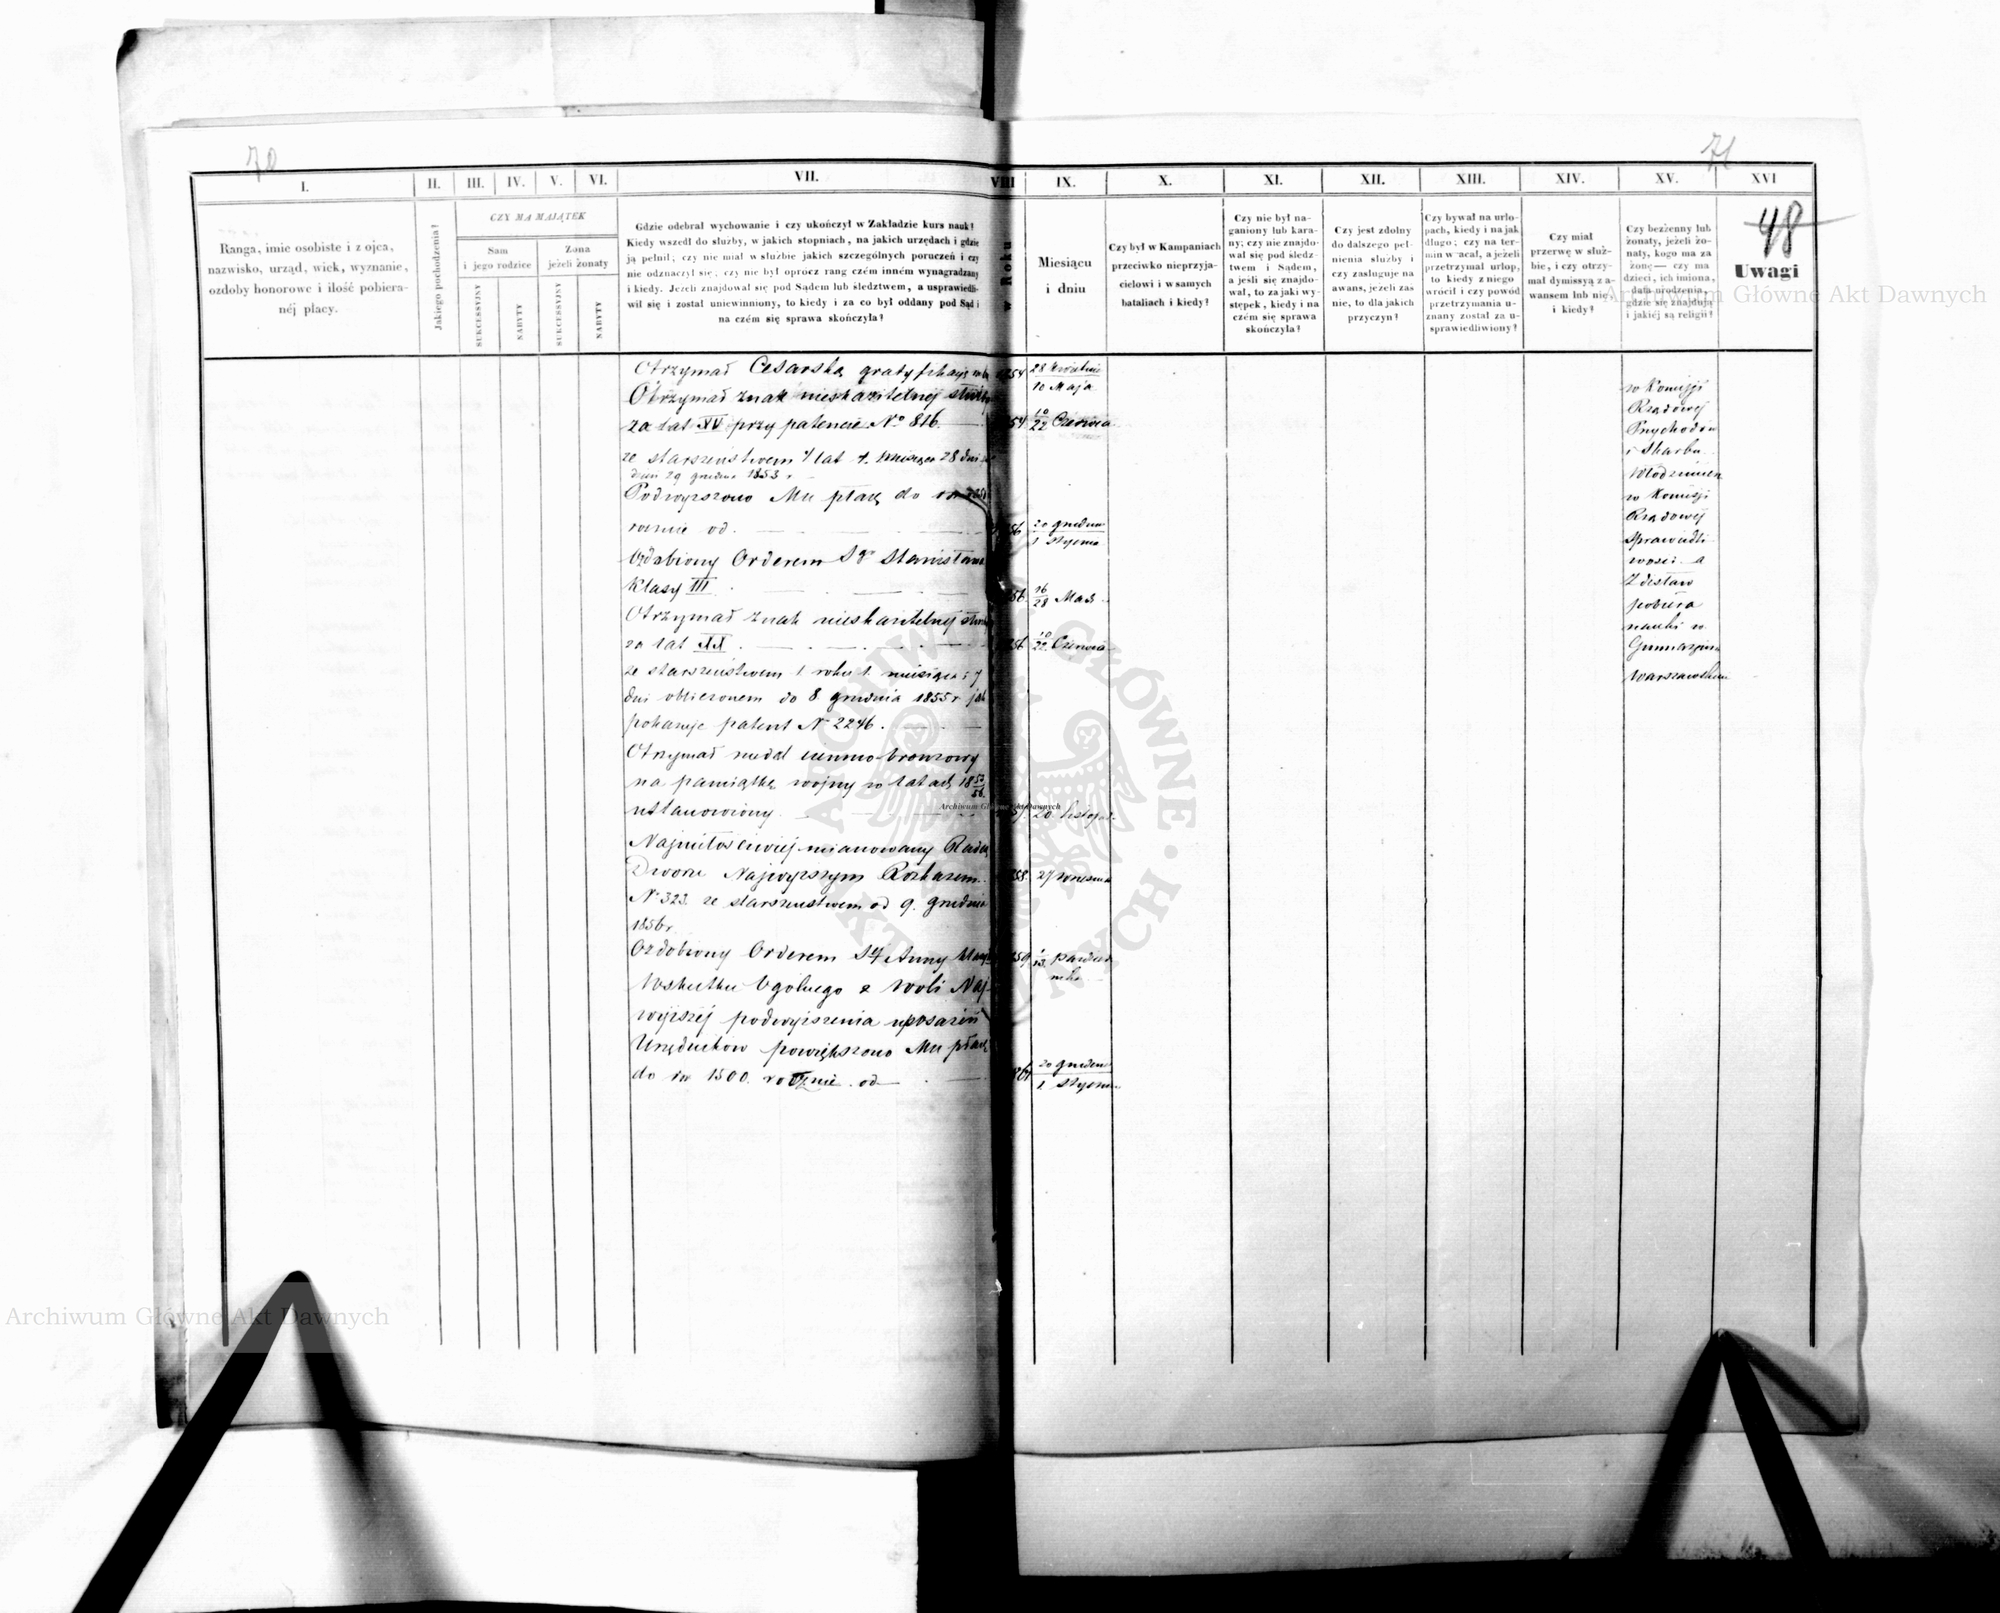 70
71
I.
II.
III.
IV.
V.
VI.
VII.
VIII
IX.
X.
XI.
XII.
XIII.
XIV.
XV.
XVI
48
Ranga, imie osobiste i z ojca,
nazwisko, urząd, wiek, wyznanie,
ozdoby honorowe i ilość pobiera-
néj płacy.
Jakiego pochodzenia?
CZY MA MAJĄTEK
Sam
i jego rodzice
Żona
jeżeli żonaty
SUKCESSYJNY
NABYTY
SUKCESSYJNY
NABYTY
Gdzie odebrał wychowanie i czy ukończył w Zakładzie kurs nauk?
Kiedy wszedł do służby, w jakich stopniach, na jakich urzędach i gdzie
ją pełnił; czy nie miał w służbie jakich szczególnych poruczeń i czy
nie odznaczył się; czy nie był oprócz rang czém inném wynagradzany
i kiedy. Jeżeli znajdował się pod Sądem lub śledztwem, a usprawiedli-
wił się i został uniewinniony, to kiedy i za co był oddany pod Sąd i
na czém się sprawa skończyła?
w Roku
Miesiącu
i dniu
Czy był w Kampaniach
przeciwko nieprzyja-
cielowi i w samych
bataliach i kiedy?
Czy nie był na-
ganiony lub kara-
ny; czy nie znajdo-
wał się pod śledz-
twem i Sądem,
a jeśli się znajdo-
wał, to za jaki wy-
stępek, kiedy i na
czém się sprawa
skończyła?
Czy jest zdolny
do dalszego peł-
nienia służby i
czy zasługuje na
awans, jeżeli zaś
nie, to dla jakich
przyczyn?
Czy bywał na urlo-
pach, kiedy i na jak
długo; czy na ter-
min wracał, a jeżeli
przetrzymał urlop,
to kiedy z niego
wrócił i czy powód
przetrzymania u-
znany został za u-
sprawiedliwiony?
Czy miał
przerwę w służ-
bie, i czy otrzy-
mał dymissyą z a-
wansem lub nie,
i kiedy?
Czy bezżenny lub
żonaty, jeżeli żo-
naty, kogo ma za
żonę — czy ma
dzieci, ich imiona,
data urodzenia,
gdzie się znajdują
i jakiéj są religii?
Uwagi
Otrzymał Cesarską gratyfikacyę
28 Kwietnia
10 Maja
Otrzymał znak nieskazitelnéj służby
za lat XV przy patencie No 816.
10/22 Czerwca
ze starszeństwem 4 lat 1. miesiąca 28 dni
dnia 29 grudnia 1853 r
Podwyższono Mu płacę do
rocznie od
20 grudnia
1 stycznia
Ozdobiony Orderem Sgo Stanisława
Klasy III
16/28 Maja
Otrzymał znak nieskazitelnéj służby
za lat XX
10/22 Czerwca
ze starszeństwem 1 roku 1. miesiąca i 7
dni obliczonem do 8 grudnia 1855 r jak
pokazuje patent No 2246.
Otrzymał medal ciemno-bronzowy
na pamiątkę wojny w latach 1853/56
ustanowiony
20 listopa
Najmiłościwiej mianowany Radcą
Dworu Najwyższym Rozkazem
27 Września
No 323 ze starszeństwem od 9. grudnia
1856 r
Ozdobiony Orderem Stéj Anny klasy
1/13 Paździer
nika
Wskutku Ogólnego z Woli Naj-
wyższéj podwyższenia uposażeń
Urzędników powiększono Mu płacę
do rs 1500. rocznie od
20 grudnia
1 stycznia
w Komisji
Rządowéj
Przychodów
i Skarbu
Włodzimierz
w Komisji
Rządowéj
Sprawiedli
wości a
Zdzisław
pobiera
nauki w
Gimnazjum
Warszawskiem
Archiwum Główne Akt Dawnych
Archiwum Główne Akt Dawnych
Archiwum Główne Akt Dawnych
ARCHIWUM GŁÓWNE AKT DAWNYCH